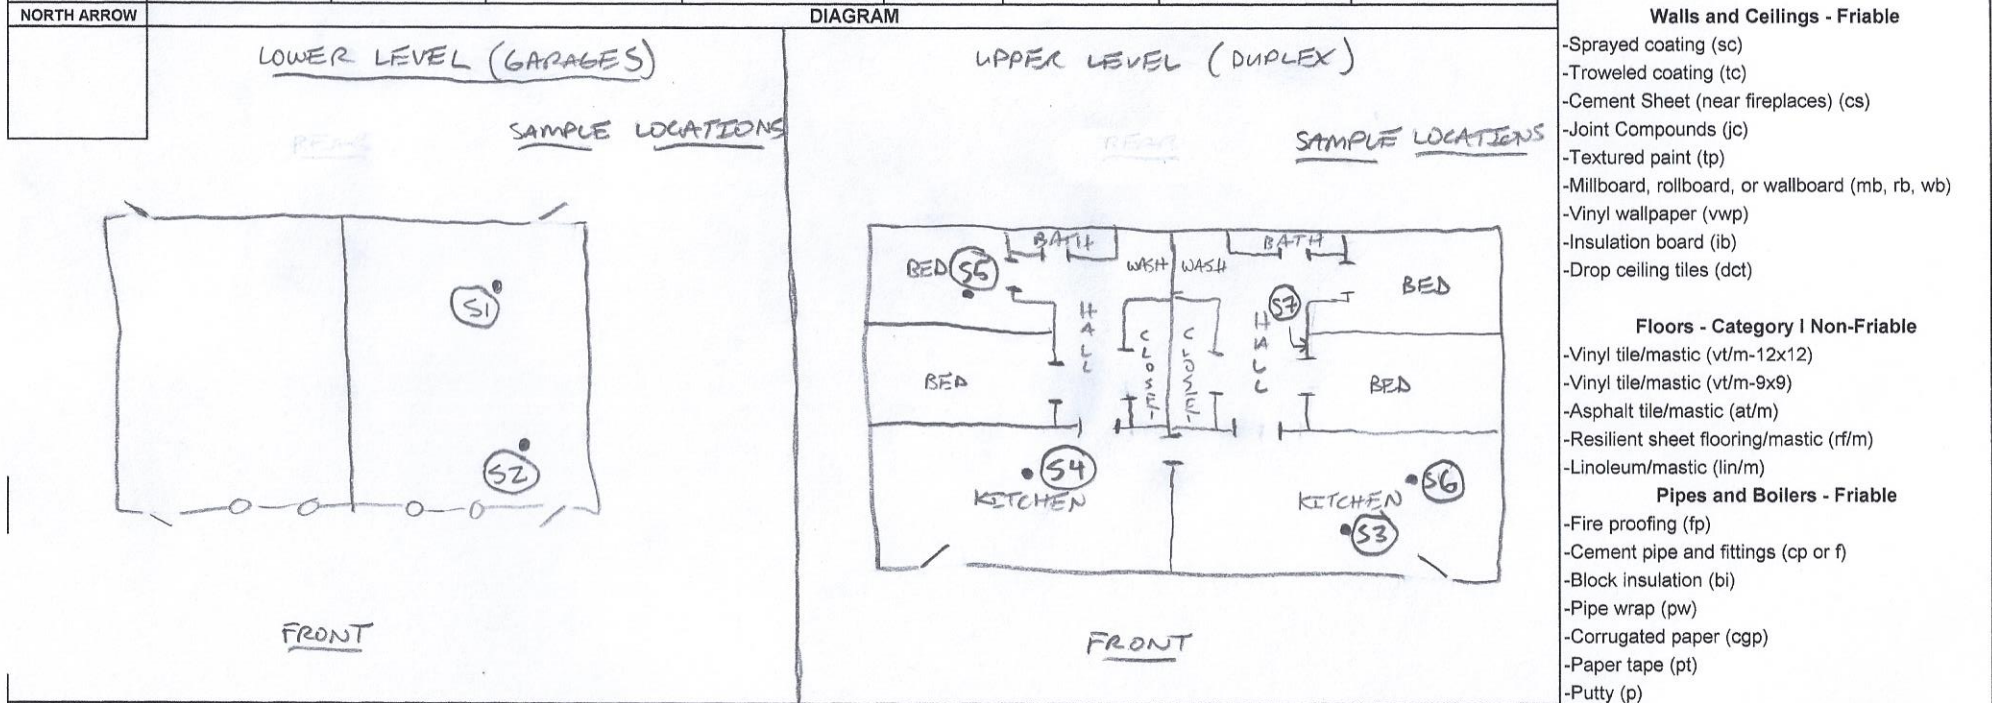 NORTH ARROW
DIAGRAM
LOWER LEVEL (GARAGES)
SAMPLE LOCATIONS
REAR
S1
S2
FRONT
UPPER LEVEL (DUPLEX)
SAMPLE LOCATIONS
REAR
BATH
BATH
BED S5
WASH
WASH
BED
S7
HALL
CLOSET
CLOSET
HALL
BED
BED
S4
S6
KITCHEN
KITCHEN
S3
FRONT
Walls and Ceilings - Friable
-Sprayed coating (sc)
-Troweled coating (tc)
-Cement Sheet (near fireplaces) (cs)
-Joint Compounds (jc)
-Textured paint (tp)
-Millboard, rollboard, or wallboard (mb, rb, wb)
-Vinyl wallpaper (vwp)
-Insulation board (ib)
-Drop ceiling tiles (dct)
Floors - Category I Non-Friable
-Vinyl tile/mastic (vt/m-12x12)
-Vinyl tile/mastic (vt/m-9x9)
-Asphalt tile/mastic (at/m)
-Resilient sheet flooring/mastic (rf/m)
-Linoleum/mastic (lin/m)
Pipes and Boilers - Friable
-Fire proofing (fp)
-Cement pipe and fittings (cp or f)
-Block insulation (bi)
-Pipe wrap (pw)
-Corrugated paper (cgp)
-Paper tape (pt)
-Putty (p)